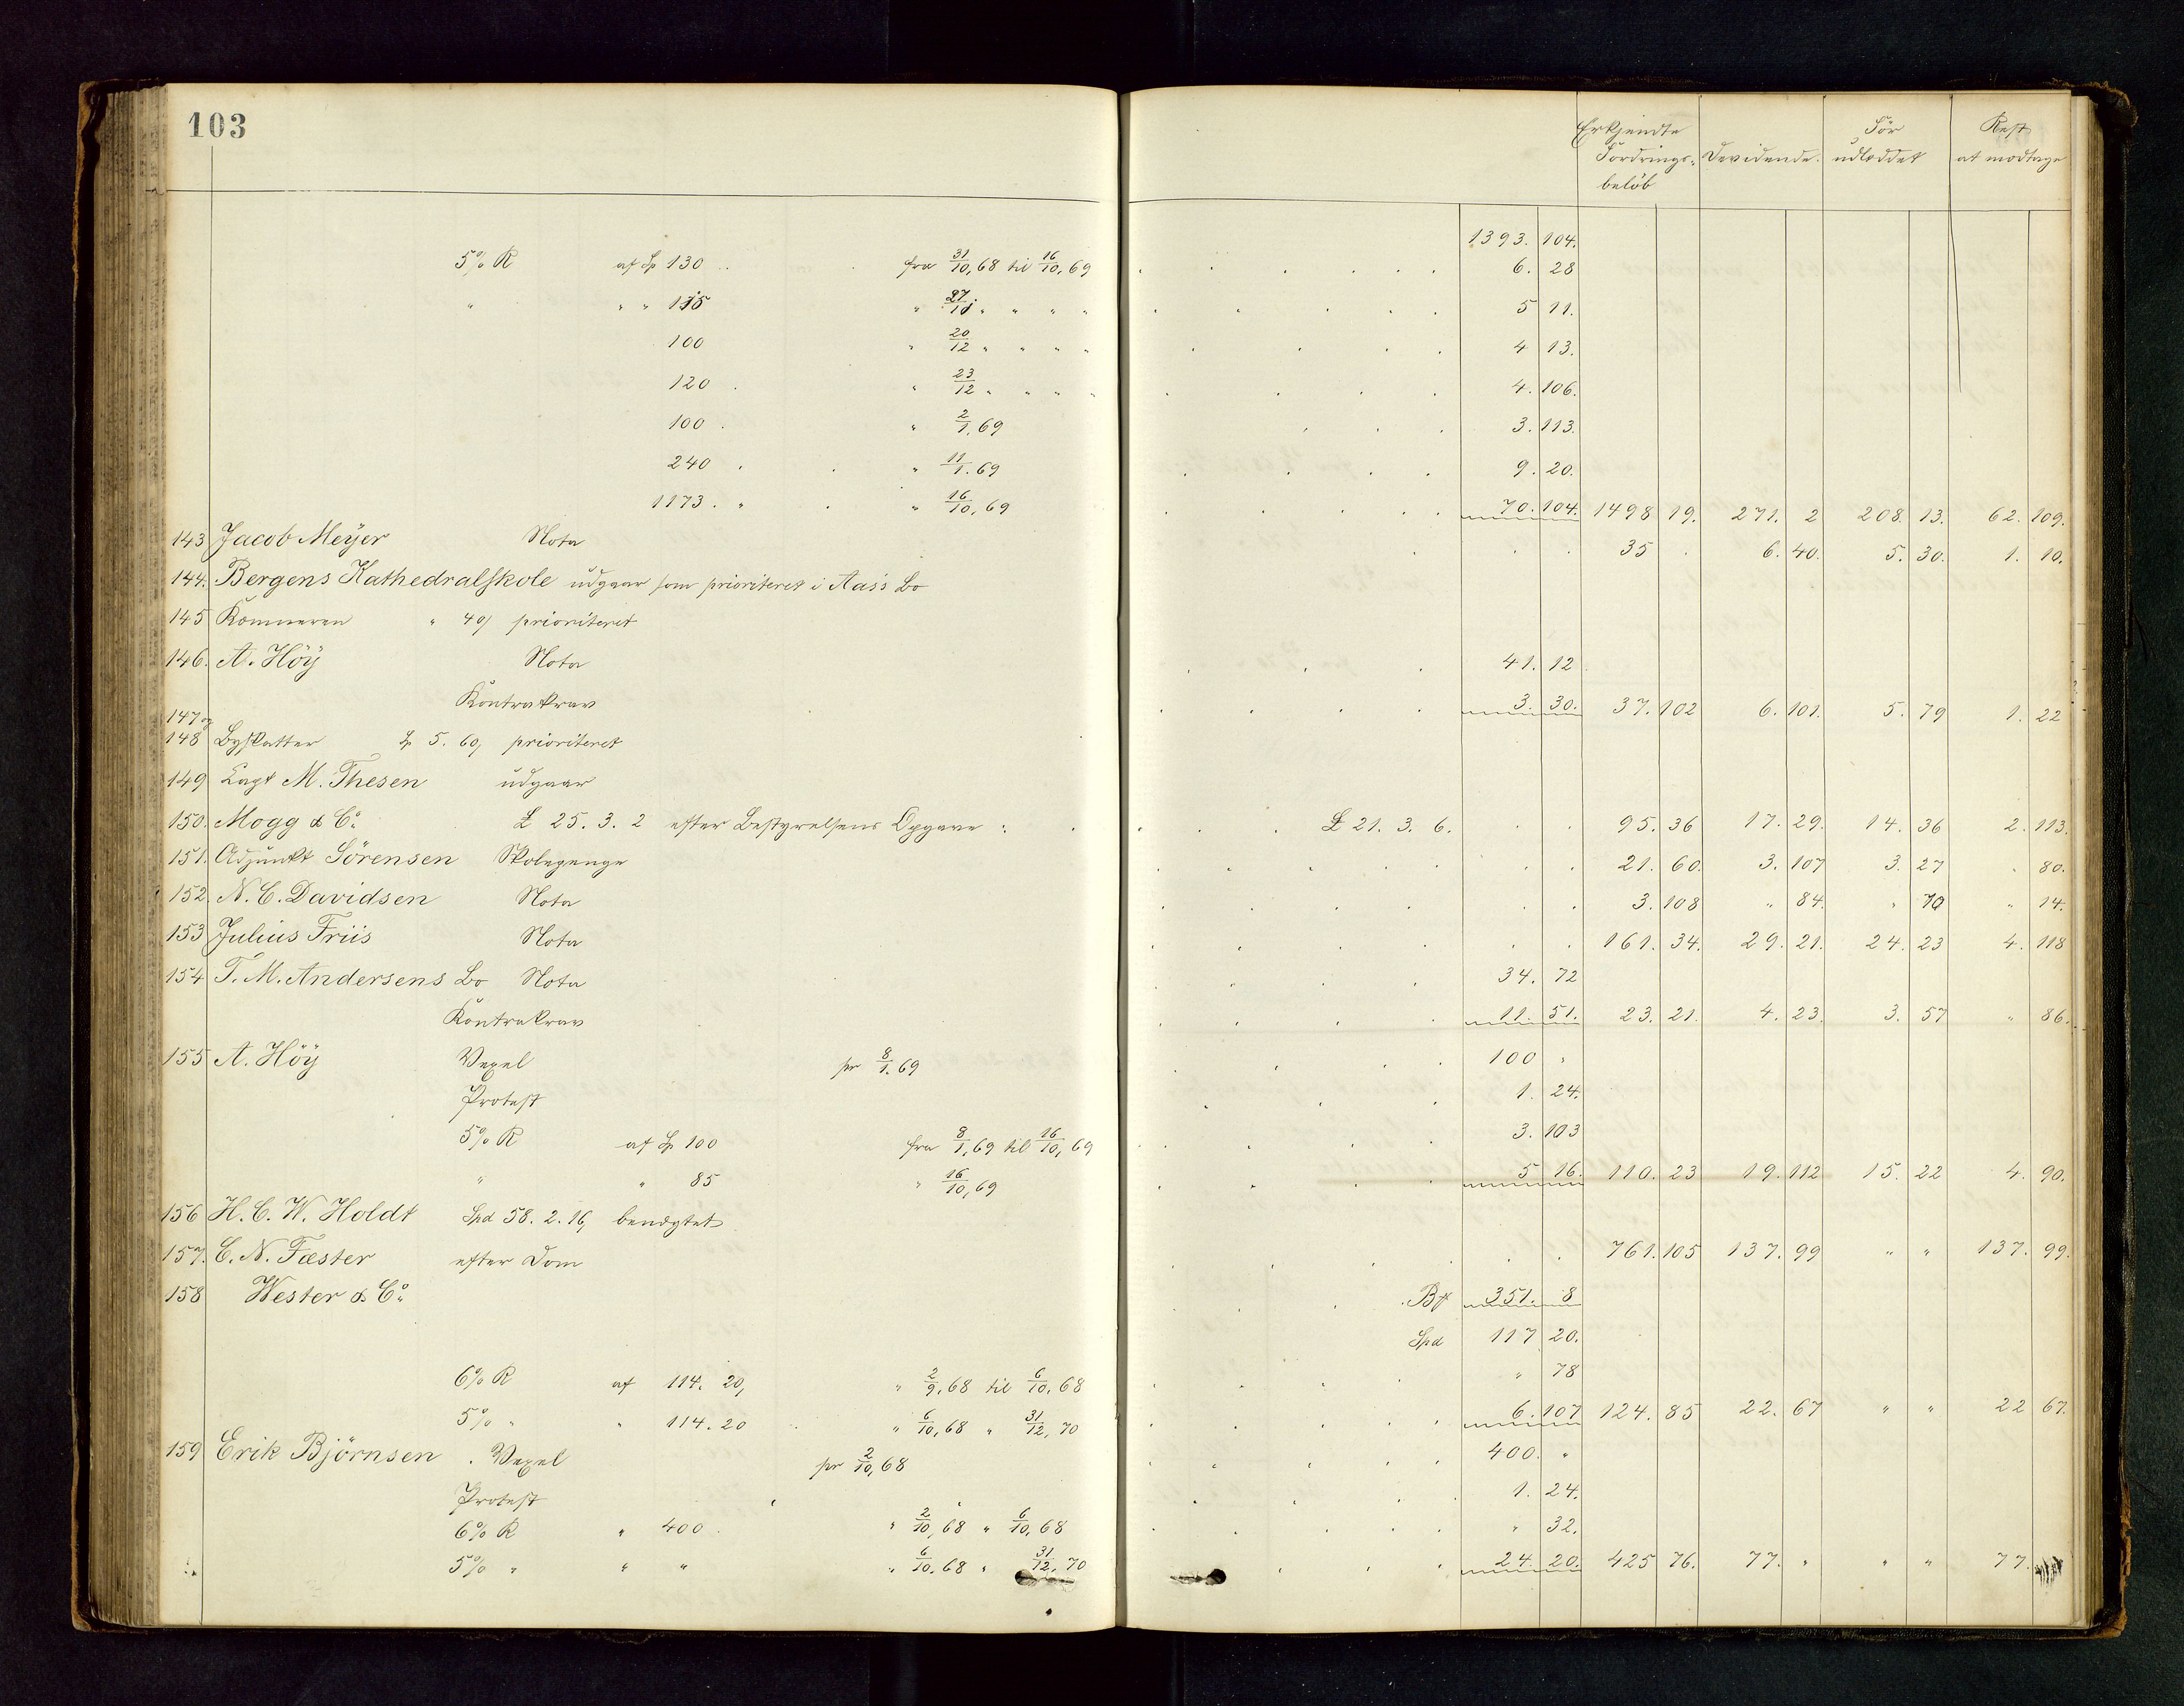 103
Erkjendte Fordrings- beløb
Devidende.
Før udloddet
Rest at modtage
1393. 104.
5% R af Sp 130 .. fra 31/10, 68 til 16/10, 69 6. 28
" " " 115 " 27/11 " " " " 5 11.
100 " 20/12 " " " " 4 13.
120 . " 23/12 " " " " 4. 106.
100 . " 2/1. 69 3. 113.
240 . " 11/1. 69 9. 20.
1173. " " 16/10, 69 70. 104. 1498 19. 271. 2 208. 13. 62. 109.
143 Jacob Meÿer Nota 35 . 6. 40. 5. 30. 1. 10.
144. Bergens Kathedralskole udgaar som prioriteret i Aas's Bo
145 Kæmneren " 49/ prioriteret
146. A. Höÿ Nota 41. 12
Kontrakrav 3. 30. 37. 102 6. 101. 5. 79 1. 22
147 og
148 Byskatter Sp 5. 60, prioriteret
149 Capt M. Thesen udgaar
150. Mogg & Co. £ 25. 3. 2 efter Bestyrelsens Opgave : £ 21. 3. 6. 95. 36 17. 29. 14. 36 2. 113.
151. Adjunkt Sörensen Skolepenge 21. 60. 3. 107 3. 27 . 80.
152. N. C. Davidsen Nota 3. 108 " 84. " 70 " 14.
153 Julius Friis Nota 161. 34. 29. 21. 24. 23 4. 118
154 T. M. Andersens Bo Nota 34. 72
Kontrakrav 11. 51. 23. 21. 4. 23. 3. 57 " 86.
155 A. Höÿ Vexel pr 8/1. 69 100 "
Protest 1. 24.
5% R af Sp 100 fra 8/1, 69 til 16/10, 69 3. 103
" " 85 " 16/10, 69 5 16. 110. 23 19. 112 15. 22 4. 90.
156 H. C. W. Holdt Spd 58. 2. 16, benægtet
157. C. N. Fæster efter Dom 761. 105 137. 99 " " 137. 99.
158 Wester & Co. 351. 8
Spd 117 20.
6% R af 114. 20, " 2/9. 68 til 6/10. 68 " 78
5% " " 114. 20 " 6/10, 68 " 31/12, 70 6. 107 124. 85 22. 67 " " 22 67.
159 Erik Björnsen . Vexel pr 2/10, 68 400. "
Protest 1. 24.
6% R " 400 . " 2/10, 68 " 6/10, 68 " 32.
5% " " " " 6/10. 68 " 31/12, 70 24. 20. 425 76. 77. " " " 77.